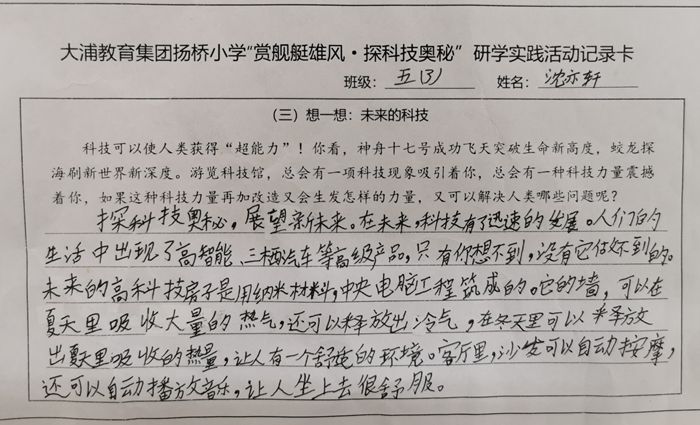 大浦教育集团扬桥小学“赏舰艇雄风·探科技奥秘”研学实践活动记录卡
班级：五(3) 姓名：沈亦轩
（三）想一想：未来的科技
科技可以使人类获得“超能力”！你看，神舟十七号成功飞天突破生命新高度，蛟龙探
海刷新世界新深度。游览科技馆，总会有一项科技现象吸引着你，总会有一种科技力量震撼
着你，如果这种科技力量再加改造又会生发怎样的力量，又可以解决人类哪些问题呢？
探科技奥秘，展望新未来。在未来，科技有了迅速的发展。人们的
生活中出现了高智能、三栖汽车等高级产品，只有你想不到，没有它做不到的。
未来的高科技房子是用纳米材料，中央电脑工程筑成的。它的墙，可以在
夏天里吸收大量的热气，还可以释放出冷气，在冬天里可以释放
出夏天里吸收的热量，让人有一个舒适的环境。客厅里，沙发可以自动按摩，
还可以自动播放音乐，让人坐上去很舒服。